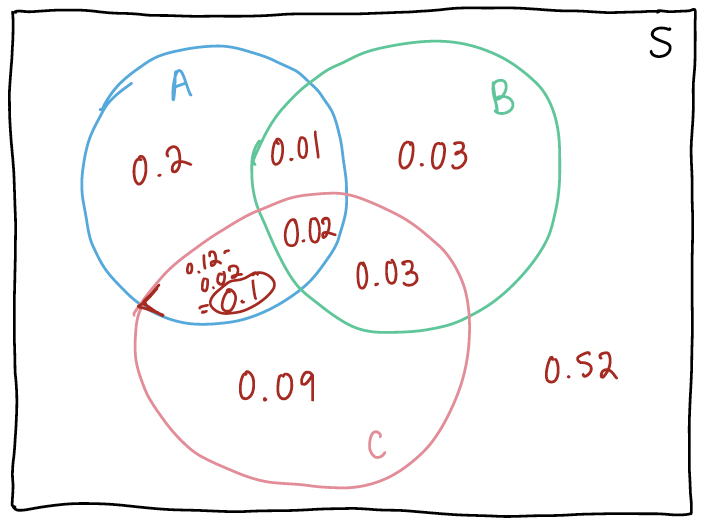 S
A
B
0.2
0.01
0.03
0.02
0.12-
0.02
=0.1
0.03
0.09
0.52
C